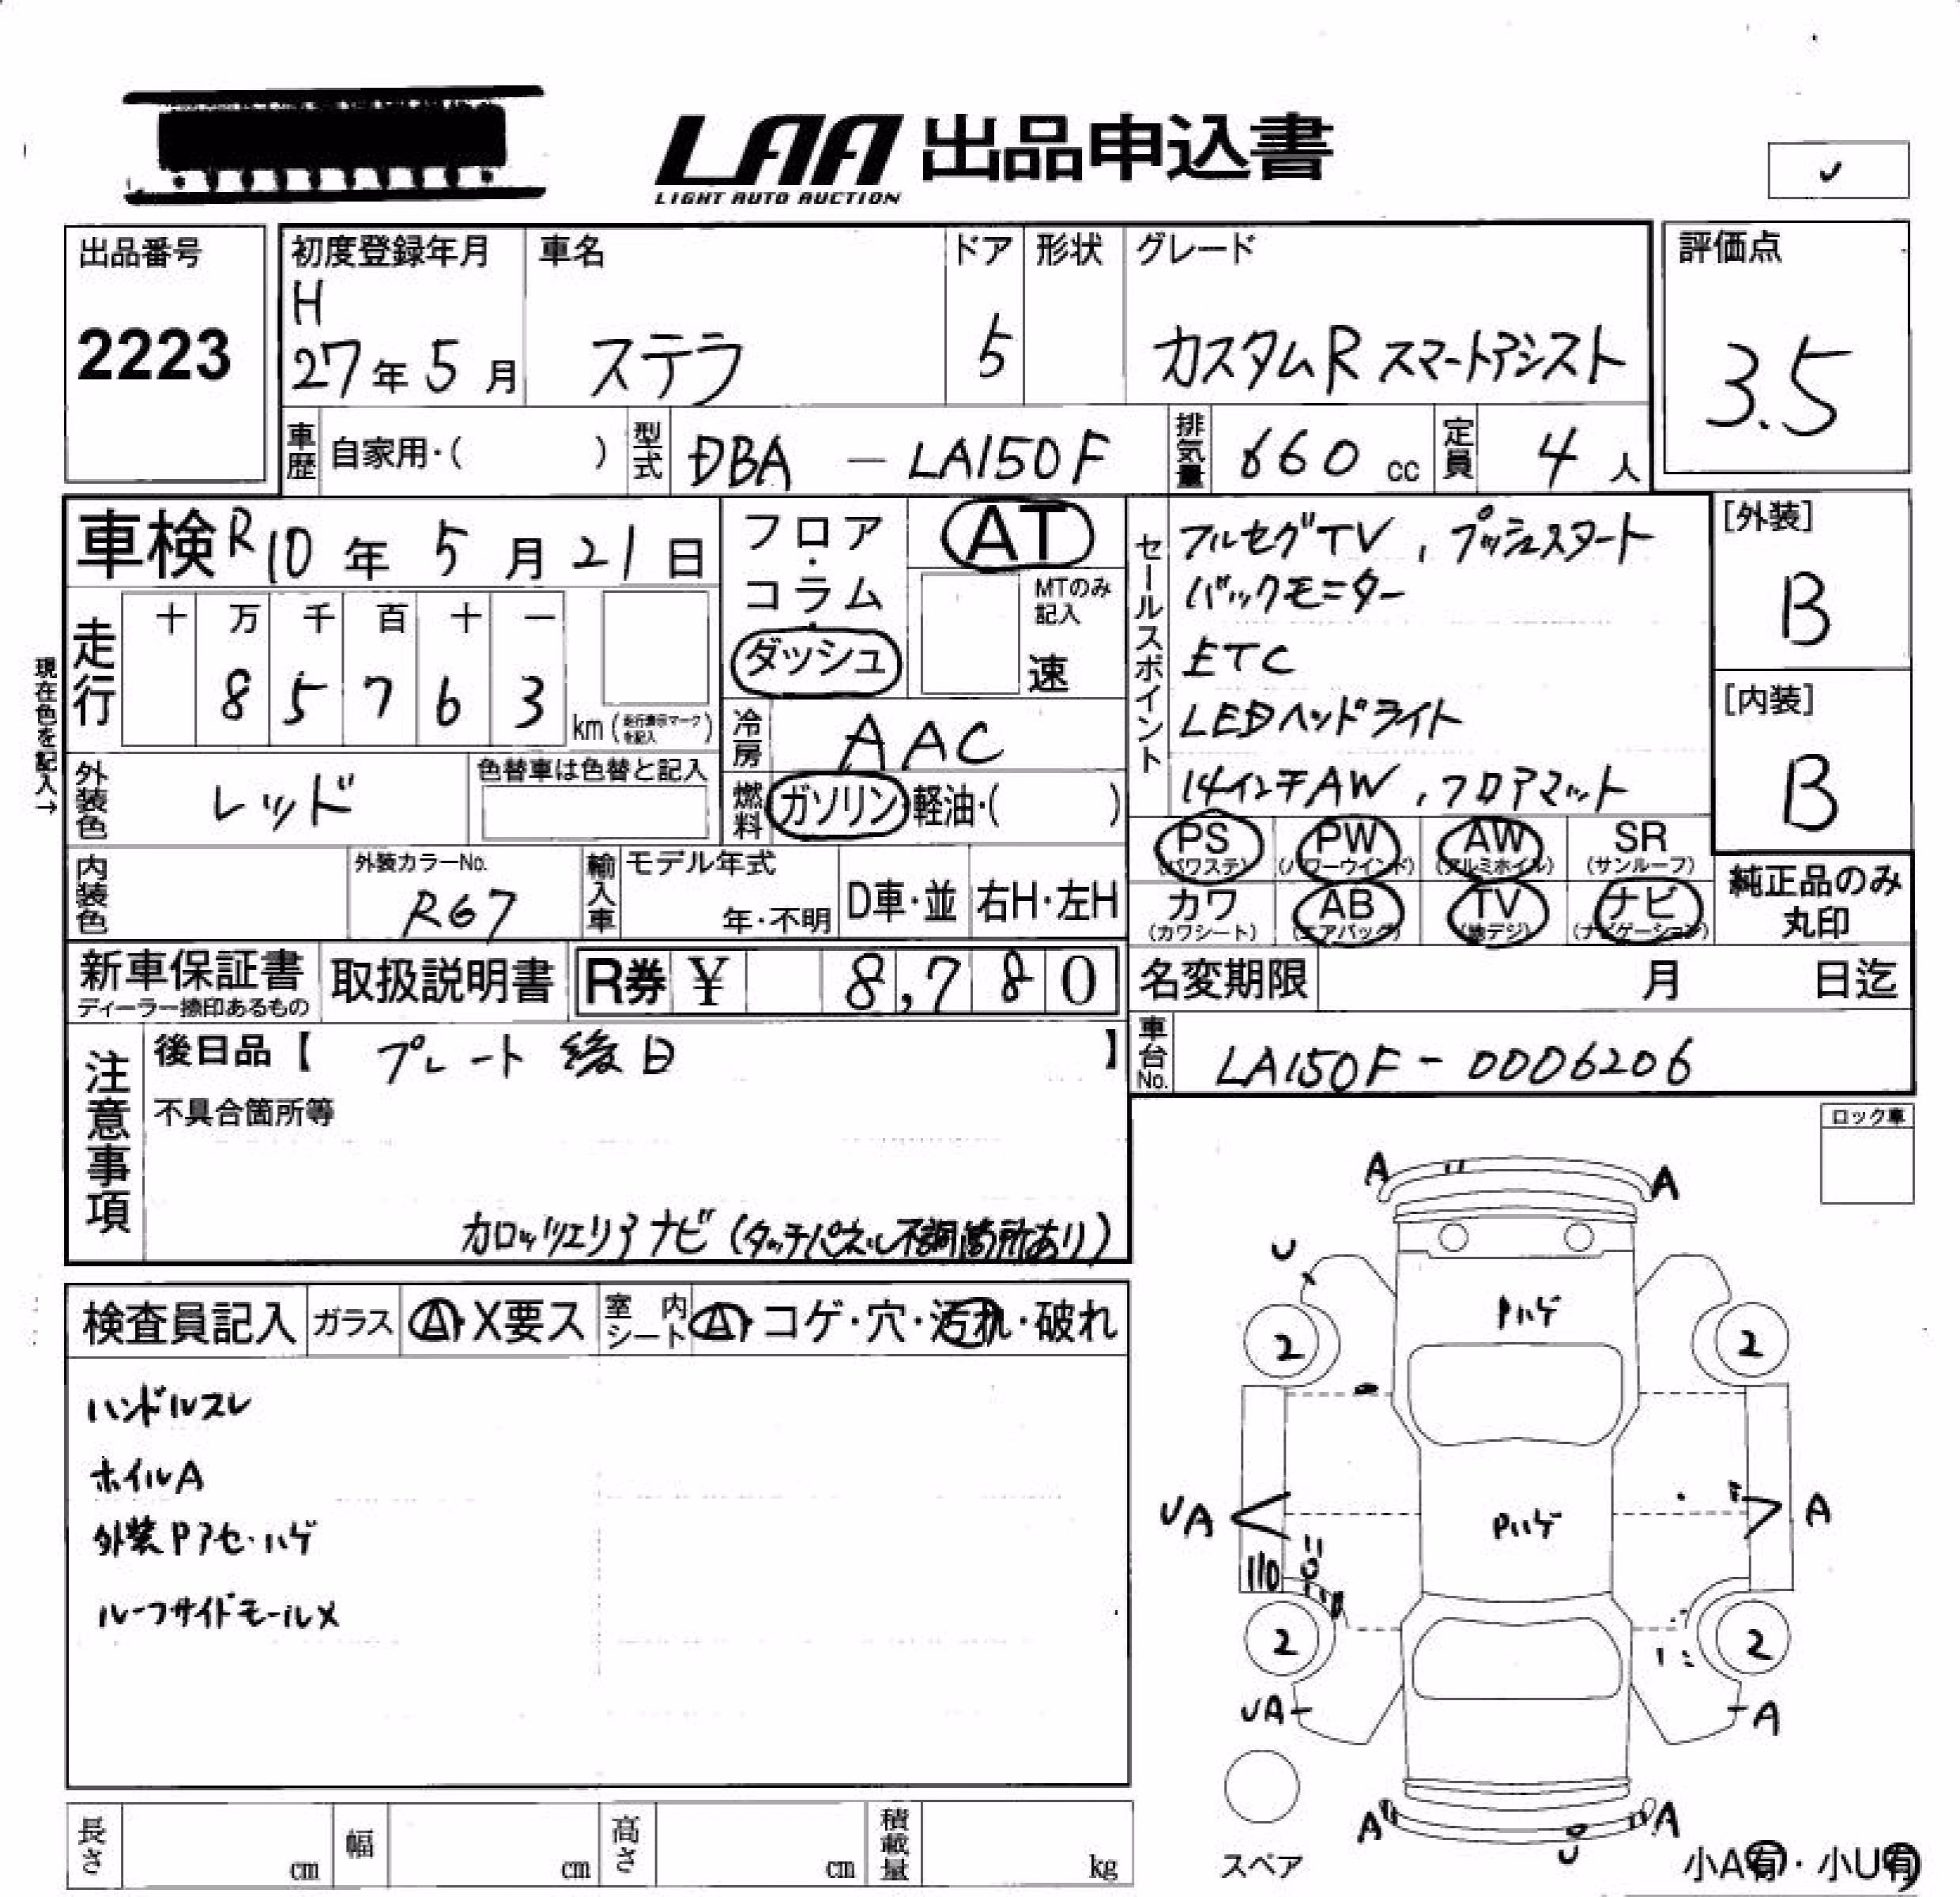 LAA 出品申込書
LIGHT AUTO AUCTION
出品番号
2223
初度登録年月
H
27年5月
車名
ステラ
ドア
5
形状
グレード
カスタムR スマートアシスト
評価点
3.5
車歴 自家用・( )
型式 DBA — LA150F
排気量 660 cc
定員 4 人
車検 R10年 5月 21日
フロア・コラム・ダッシュ
AT
MTのみ記入
速
セールスポイント
フルセグTV, プッシュスタート
バックモニター
ETC
LEDヘッドライト
14インチAW, フロアマット
[外装]
B
[内装]
B
現在色を記入→
走行
十 万 千 百 十 一
8 5 7 6 3
km (走行表示マークを記入)
冷房 AAC
燃料 ガソリン・軽油・( )
外装色 レッド
色替車は色替と記入
内装色
外装カラーNo.
R67
輸入車
モデル年式
年・不明
D車・並
右H・左H
PS (パワステ)
PW (パワーウインド)
AW (アルミホイル)
SR (サンルーフ)
カワ (カワシート)
AB (エアバッグ)
TV (地デジ)
ナビ (ナビゲーション)
純正品のみ
丸印
新車保証書
ディーラー捺印あるもの
取扱説明書
R券 ¥ 8,780
名変期限 月 日迄
車台No. LA150F - 0006206
注意事項
後日品【 プレート 後日 】
不具合箇所等
カロッツェリアナビ (タッチパネル不調箇所あり)
検査員記入
ガラス A・X要ス
室内シート A・コゲ・穴・汚れ・破れ
ハンドルスレ
ホイルA
外装Pアセ・ハゲ
ルーフサイドモールX
ロック車
A A
U
Pハゲ
2 2
UA A
Pハゲ
2 2
UA A
A A
U
スペア
小A有・小U有
長さ cm
幅 cm
高さ cm
積載量 kg